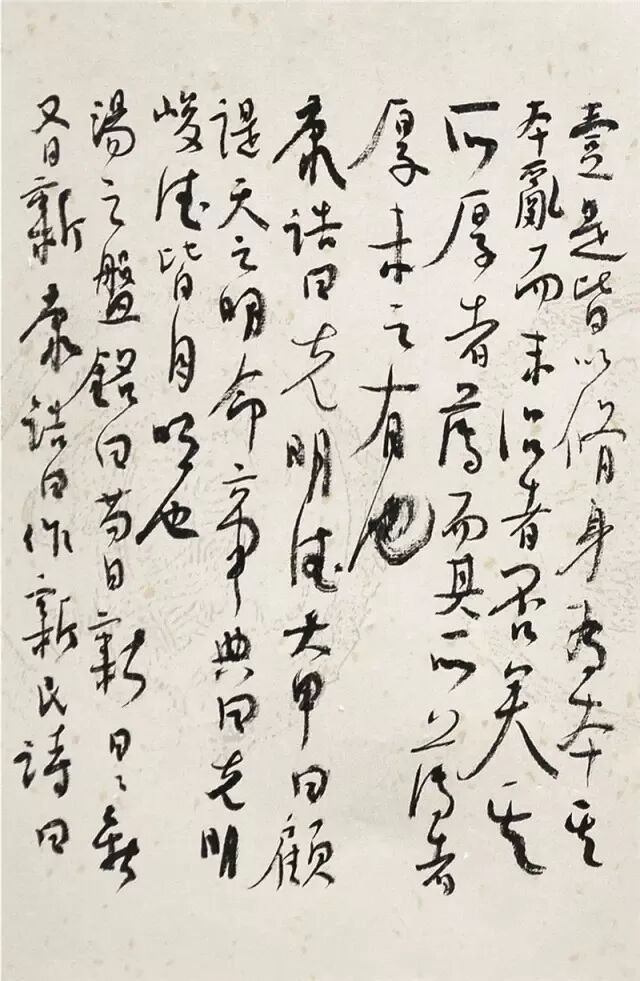 壹是皆以脩身為本其
本亂而末治者否矣其
所厚者薄而其所薄者
厚未之有也
康誥曰克明德大甲曰顧
諟天之明命帝典曰克明
峻德皆自明也
湯之盤銘曰苟日新日〻新
又日新康誥曰作新民詩曰